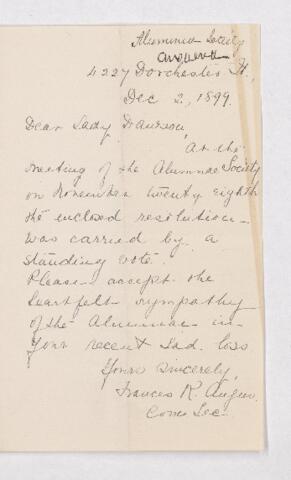 Alumnae Society
answered
4227 Dorchester St.,
Dec 2, 1899.
Dear Lady Dawson,
At the
meeting of the Alumnae Society
on November twenty eighth
the enclosed resolution
was carried by a
standing vote.
Please accept the
heartfelt sympathy
of the Alumnae in
your recent sad loss
Yours sincerely,
Frances R. Angus.
Corr Sec.